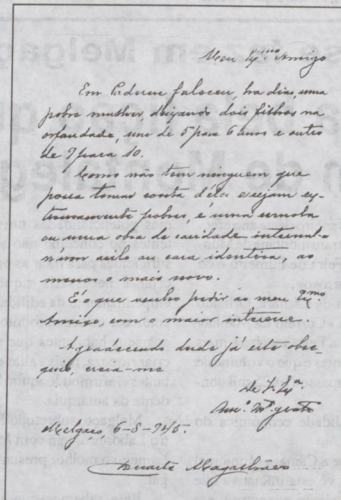 Meu Ex.mo Amigo
Em Cidreu faleceu, ha dias, uma
pobre mulher, deixando dois filhos na
orfandade, um de 5 para 6 anos e outro
de 9 para 10.
Como não tem ninguem que
possa tomar conta deles e sejam ex-
tremamente pobres, e uma esmola
ou uma obra de caridade internal-
os num asilo ou casa identica, ao
menos o mais novo.
É o que venho pedir ao meu Ex.mo
Amigo, com o maior interesse.
Agradecendo desde já este obse-
quio, creia-me
de V. Ex.ª
Am.º M.to grato
Melgaço, 6-8-945.
Duarte Magalhães